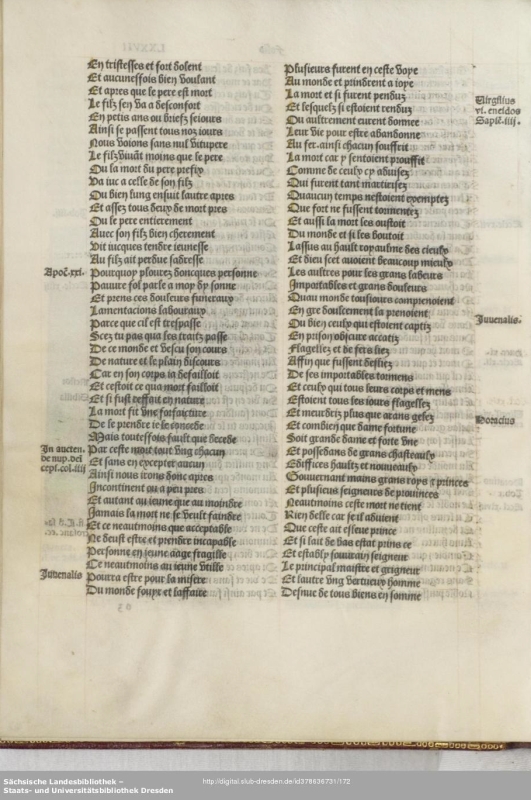 En tristesses et fort dolent
Et aucuneffois bien voulant
Et apres que le pere est mort
Le filz sen va a desconfort
En petis ans ou briefz seiours
Ainsi se passent tous noz iours
Nous voions sans nul vitupere
Le filz viuāt moins que le pere
Ou la mort du pere prefix
Va iuc a celle de son filz
Ou bien lung ensuit lautre apres
Et assez tous deux de mort pres
Ou le pere entierement
Auec son filz bien cherement
Vit iucques tendre ieunesse
Au filz ait perdue
Apoc̄.xxi. Pourquoy plourez doncques personne
Pauure fol parle a moy dy sonne
Et prens ces douleurs funeraux
Lamentacions labouraux
Parce que cil est trespasse
Scez tu pas que les traitz passe
De ce monde et vescu son cours
De nature et le plain discours
Car en son corps ia defailloit
Et cestoit ce qua mort failloit
Et si fust deffait en nature
La mort fit vne forfaicture
De le prendre ie le concede
Mais toutesfois fault que decede
In aucten. de nup. del cept. col. iiij Par ceste mort tout vng chacun
Et sans en excepter aucun
Ainsi nous irons donc apres
Incontinent ou a peu pres
Et autant ou ieune que au moindre
Jamais la mort ne se veult faindre
Et ce neautmoins que acceptable
Ne deust estre et prendre incapable
Personne en ieune aage fragille
Ce neautmoins au ieune vtille
Juuenalis Pourra estre pour la misere
Du monde fouyr et laffaire
Plusieurs furent en ceste voye
Au monde et prindrent a ioye
La mort et si furent penduz
Virgilius vi. eneidos Sapiē.iiij. Et lesquelz si estoient renduz
Ou aultrement eurent donnee
Leur vie pour estre abandonne
Au fer. ainsi chacun souffrit
La mort car y sentoient prouffit
Comme de ceulx cy aduisez
Qui furent tant martirisez
Quaucun temps nestoient exemptez
Que fort ne fussent tormentez
Et aussi la mort les oustoit
Du monde et si les boutoit
Lassus au hault royaulme des cieulx
Et dieu scet auoient beaucoup mieulx
Les aultres pour les grans labeurs
Importables et grans douleurs
Quau monde tousiours comprenoient
En gre doulcement la prenoient
Juuenalis. Ou bien ceulx qui estoient captiz
En prison obscure
Flagellez et de fers liez
Affin que fussent desliez
De ses importables tormens
Et ceulx qui tous leurs corps et mens
Estoient tous les iours flagellez
Et meurdriz plus que
Horacius Et combien que dame fortune
Soit grande dame et forte vne
Et possedans de grans chasteaulx
Edifices haultz et nouueaulx
Gouuernant mains grans roys & princes
Et plusieurs seigneurs de prouinces
Neautmoins ceste mort ne tient
Rien delle car se il aduient
Que ceste ait esleue prince
Et si lait de bas estat prins ce
Et estably souuerain seigneur
Le principal maistre et greigneur
Et lautre vng vertueux homme
Desnue de tous biens en somme
Sächsische Landesbibliothek –
Staats- und Universitätsbibliothek Dresden
http://digital.slub-dresden.de/id378636731/172